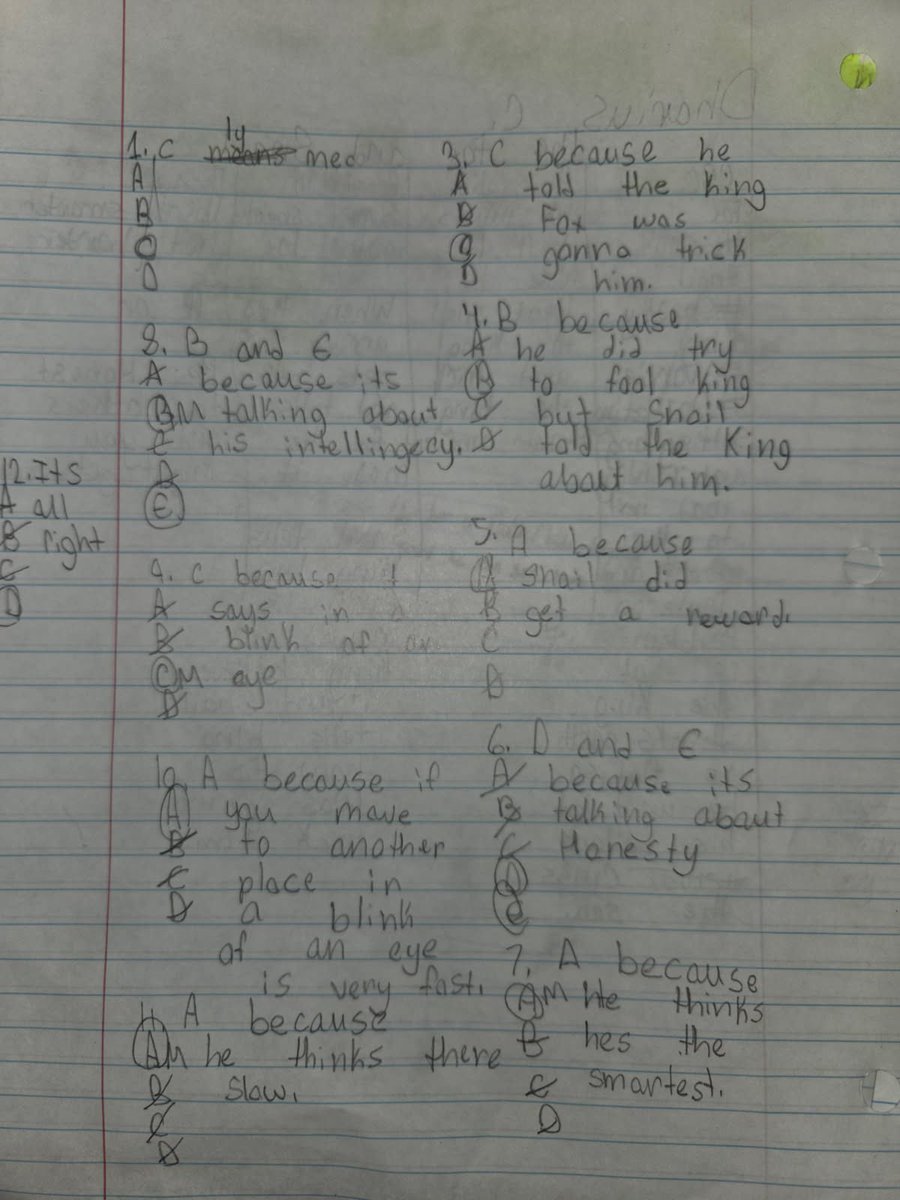 1. C means ly med
A
B
C
D
3. C because he
A told the king
B Fox was
C gonna trick
D him.
4. B because
A he did try
B to fool king
C but Snail
D told the King
about him.
5. A because
A snail did
B get a reward.
C
D
6. D and E
A because its
B talking about
C Honesty
D
E
7. A because
AM He thinks
B hes the
C smartest.
D
8. B and E
A because its
BM talking about
C his intellingecy.
D
E
9. C because
A says in a
B blink of an
CM eye
D
10. A because if
A you move
B to another
C place in
D a blink
of an eye
is very fast.
11. A because
AM he thinks there
B slow.
C
D
12. Its
A all
B right
C
D